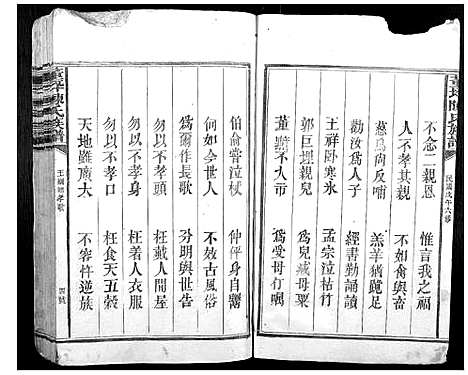 不念二親恩 惟言我之福
人不孝其親 不如禽與畜
慈烏尚反哺 羔羊猶跪足
勸汝為人子 經書勤誦讀
王祥臥寒氷 孟宗泣枯竹
郭巨埋親兒 為兒減母粟
董黯不入市 為愛母打嘱
伯俞嘗泣杖 仲伻身自鬻
如何今世人 不效古風俗
為爾作長歌 分明與世告
勿以不孝頭 枉戴人間屋
勿以不孝身 枉着人衣服
勿以不孝口 枉食天五穀
天地雖廣大 不容忤逆族